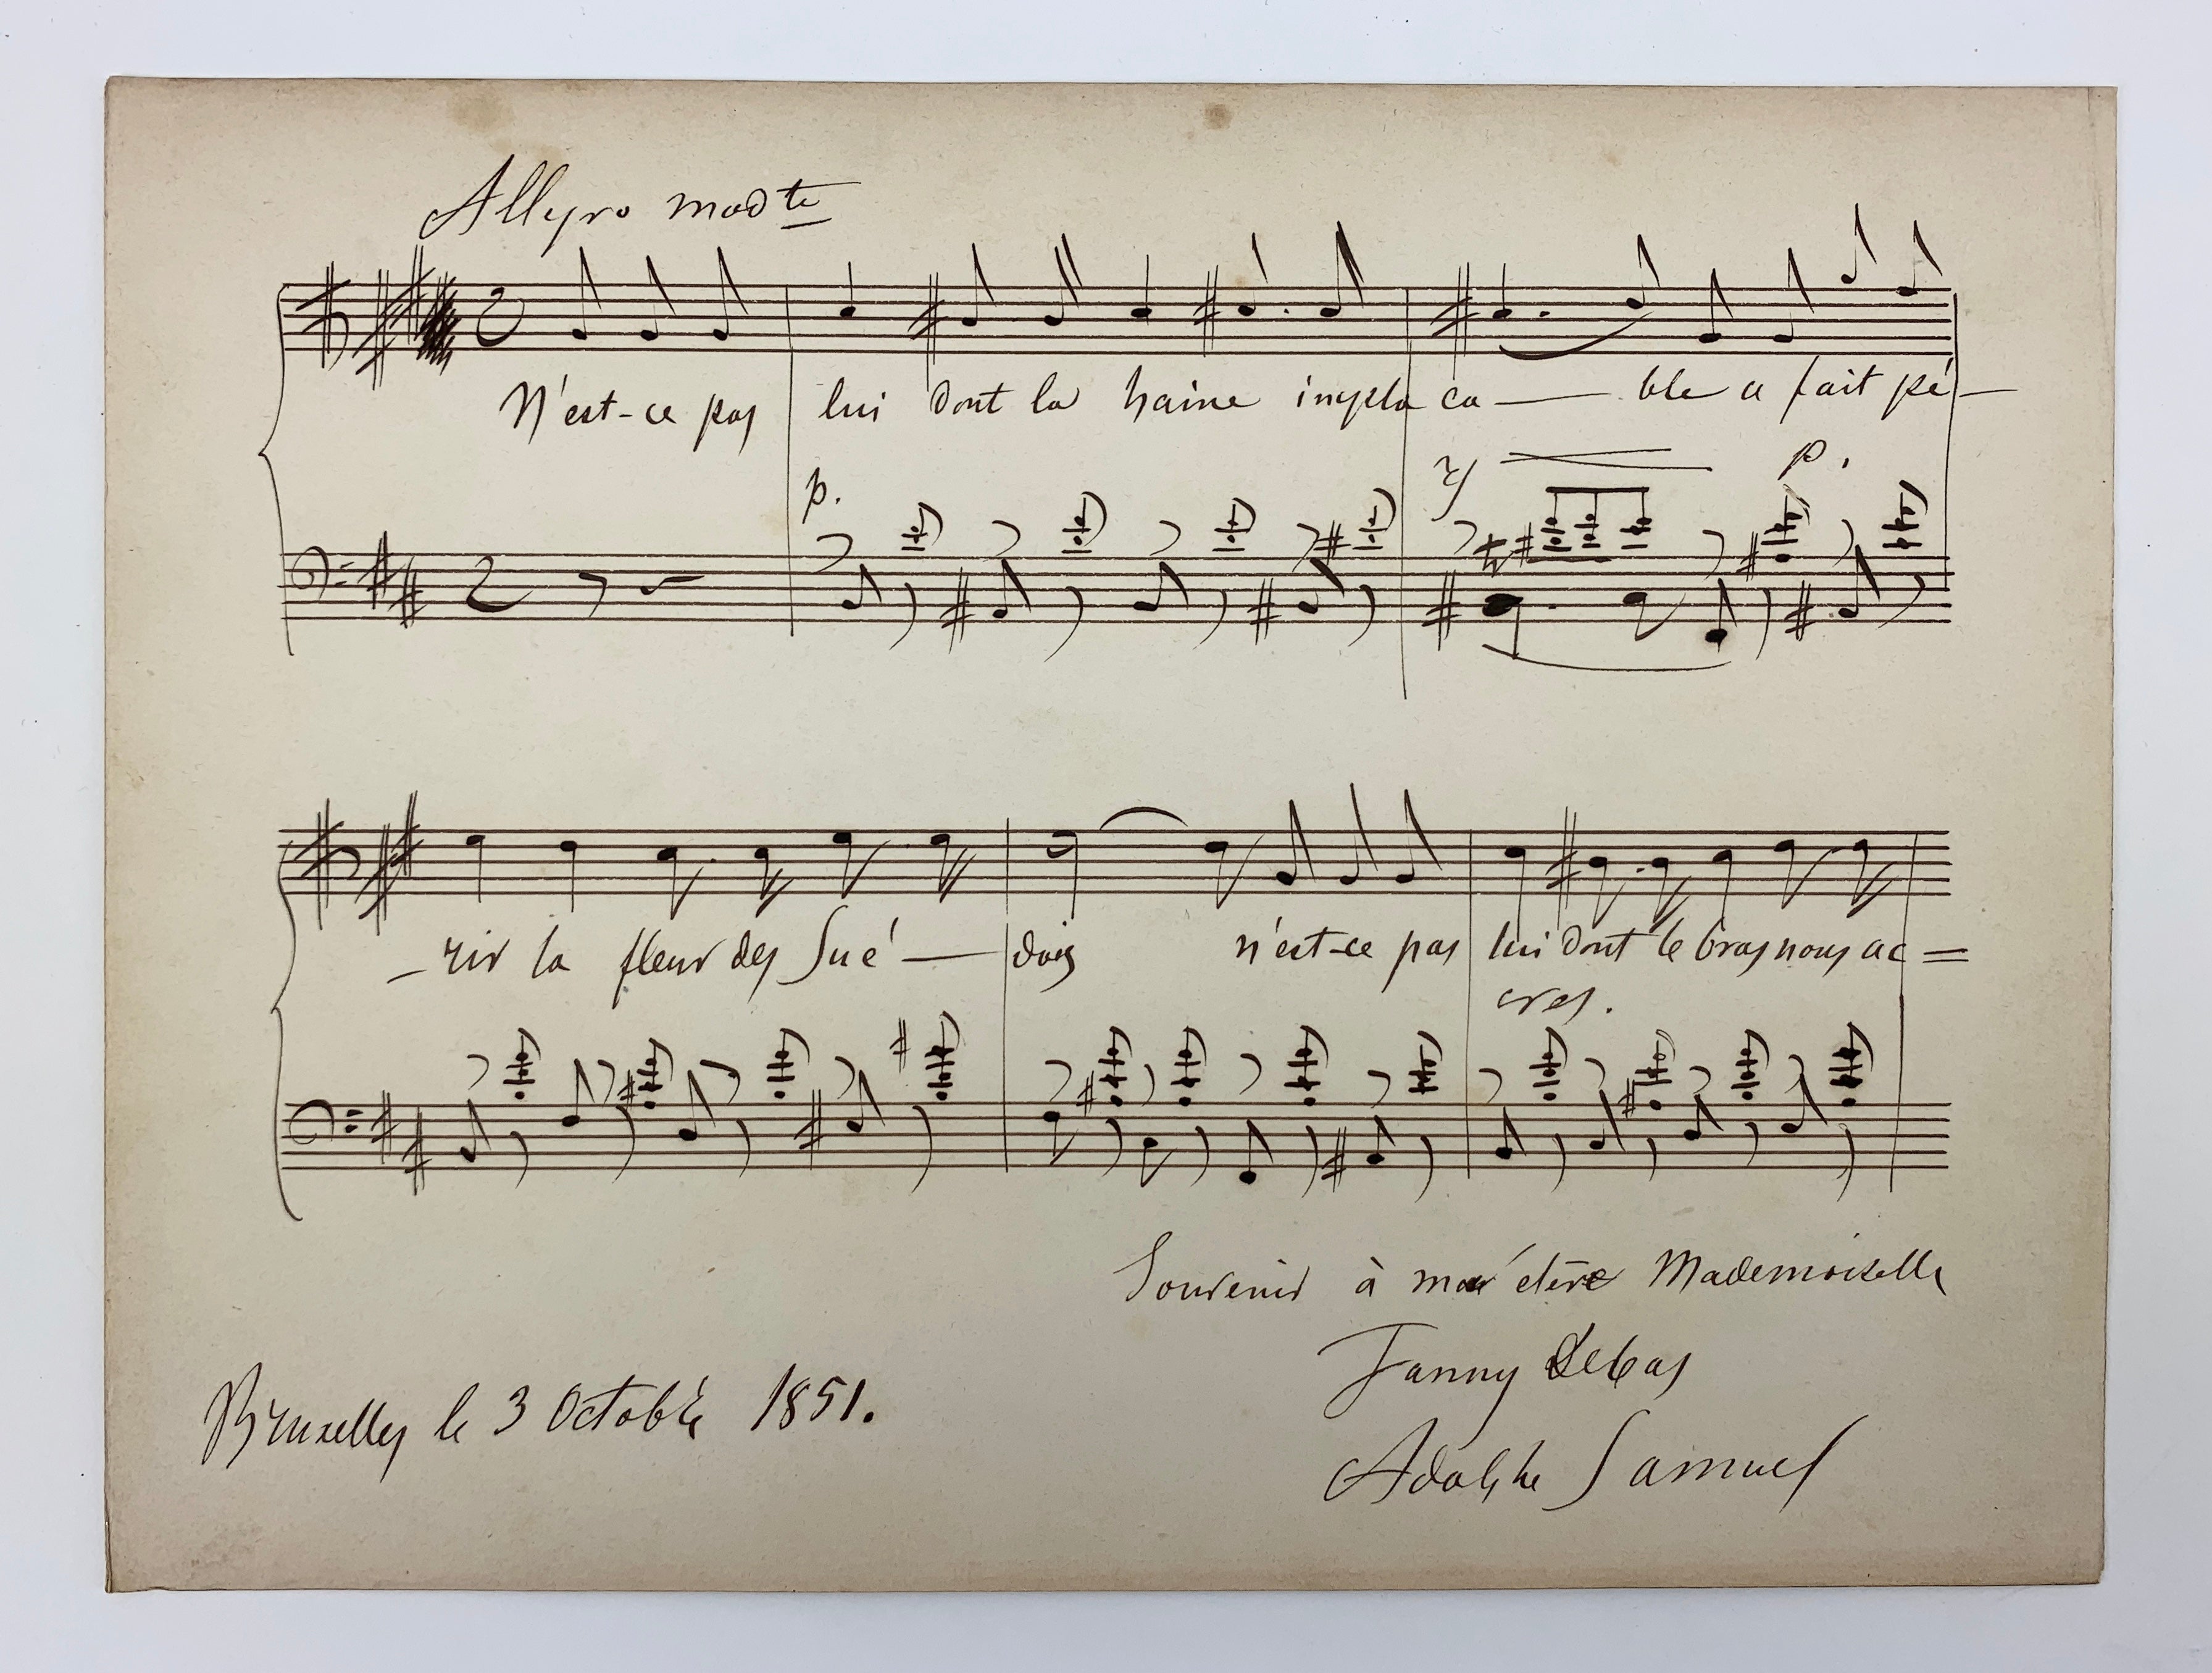 Allegro modte
N'est-ce pas lui dont la haine impla ca — ble a fait pé —
p. p.
— rir la fleur des Sué — dois n'est-ce pas lui dont le bras nous ac =
cres.
Souvenir à mon élève Mademoiselle
Fanny Debas
Bruxelles le 3 Octobre 1851.
Adolphe Samuel